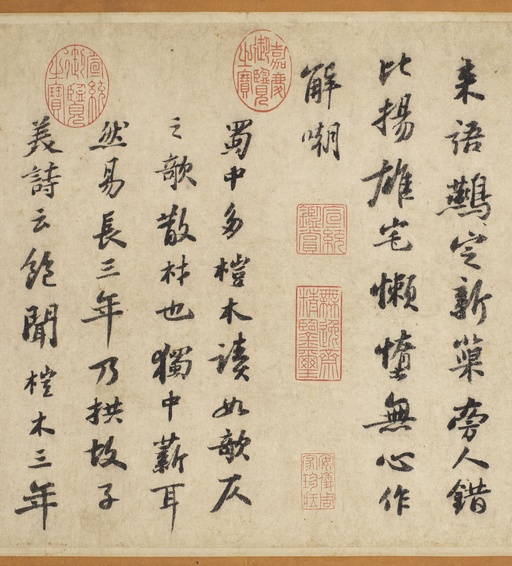 来語鷰定新巢旁人錯
比揚雄宅懶惰無心作
解嘲
嘉慶御覽之寶
宣統鑑賞
無逸齋精鑒璽
安儀周家珍藏
蜀中多榿木讀如欹仄
之欹散材也獨中薪耳
然易長三年乃拱故子
美詩云飽聞榿木三年
宣統御覽之寶